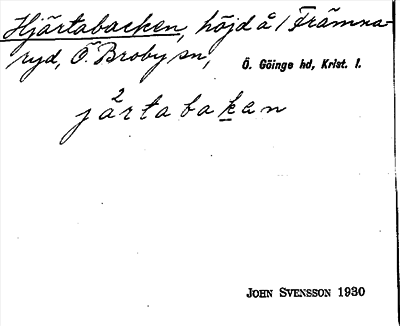 Hjärtabacken, höjd å 1 Främna-
ryd, Ö. Broby sn, Ö. Göinge hd, Krist. l.
j²ärtabaken
JOHN SVENSSON 1930